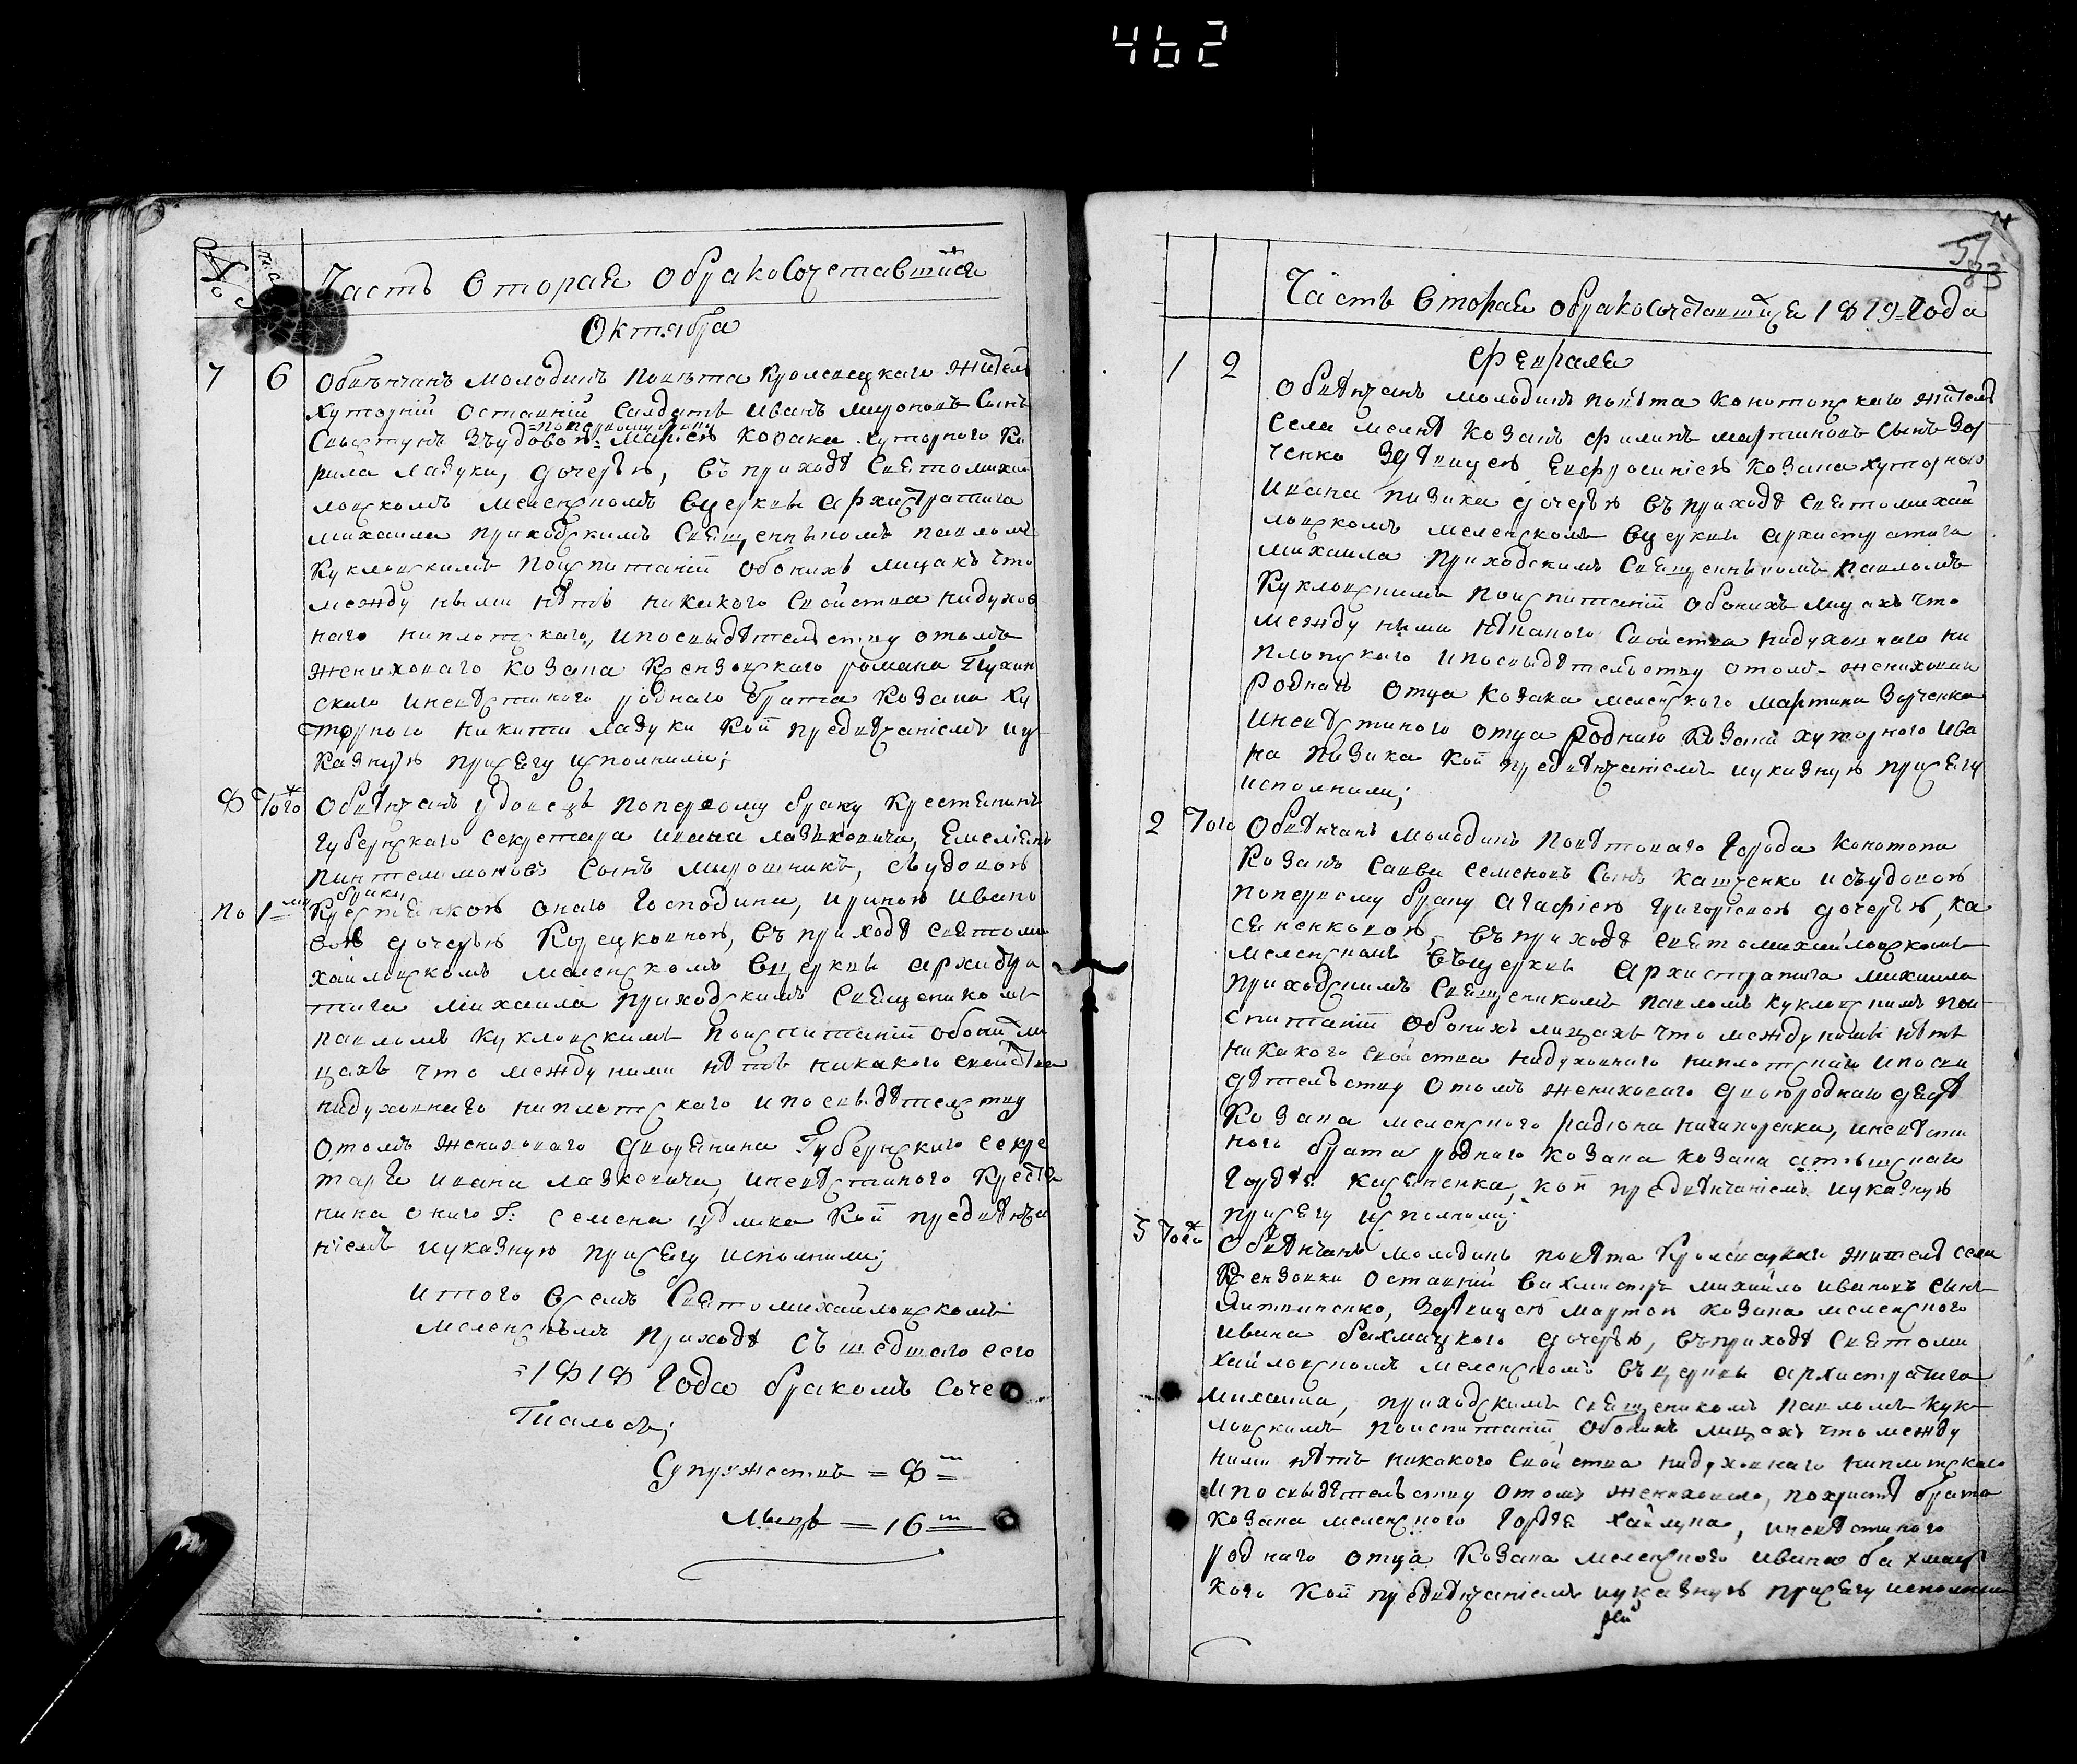 462
№
Часть вторая обракосочетавшихся
Октября
7 6 Обвѣнчанъ молодикъ повѣта Кролевецкаго житель
хуторній оставній салдатъ Иванъ Мироновъ сынъ
=по первому браку
зъудовою: Маріею козака хуторного Ки
рила Лазуки, дочерью, въ приходѣ Святомихай
ловскомъ Меленскомъ вцеркви Архистратига
Михаила приходскимъ Священникомъ Павломъ
Кукловскимъ поиспитаніи обоихъ лицахъ что
между ными нѣтъ никакого свойства нидухов
наго ниплотскаго, ипосвыдѣтелству отомъ
жениховаго козака Ксензовского Романа
ского иневѣстиного роднаго брата козака Ху
торного Никити Лазуки кои предвѣнчаніемъ иу
казную присягу исполнили;
8 Того Обвѣнчанъ удовецъ поперьвому браку крестянинъ
губернскаго секретара Ивана Лазкевича, Емеліянъ
Пинтелимоновъ сынъ Мирошникъ, съудовою
по 1-му браку крестянкою онаго господина, Ириною Ивано
вою дочерью въ приходѣ Святоми
хайловскомъ Меленскомъ вцеркви Архистра
тига Михаила приходскимъ Священикомъ
Павломъ Кукловскимъ поиспитаніи обоихъ ли
цахъ что между ними нѣтъ никакого свойства
нидуховнаго ниплотскаго ипосвыдѣтелству
отомъ жениховаго дворянина Губернскаго секре
таря Ивана Лазкевича, иневѣстиного крестя
нина оного Г: Семена кои предвѣнча
ніемъ иуказную присягу исполнили;
итого всемъ Святомихайловскомъ
Меленскомъ приходѣ съшедшаго сего
=1818 года бракомъ соче
талось;
Супружествъ = 8
Лыцъ = 16
83
Часть вторая обракосочетавшихся 1819-Года
Февраля
1 2 Обвѣнчанъ молодикъ повѣта Конотопского житель
села Меленѣ козакъ Филипъ Мартиновъ сынъ Зор
ченко здѣвицею Евфросиніею козака хуторного
Ивана Пизика дочерью въ приходѣ Святомихай
ловскомъ Меленскомъ вцеркви Архистратига
Михаила приходскимъ Священникомъ Павломъ
Кукловскимъ поиспитаніи обоихъ лицахъ что
между ними свойства нидуховнаго ни
плотскаго ипосвыдѣтелству отомъ жениховаго
роднаго отца козака Меленского Мартина Зорченка
иневѣстиного отца родного козака хуторного Ива
на Пизика кои предвѣнчаніемъ иуказную присягу
исполнили;
2 Того Обвѣнчанъ молодикъ повѣтоваго города Конотопа
козакъ Савва Семеновъ сынъ Кащенко исъудовою
поперьвому браку Агафіею Григоріевою дочерью, Ка
сяненковою, въ приходѣ Святомихайловскомъ
Меленскомъ въцеркви Архистратига Михаила
приходскимъ Священикомъ Павломъ Кукловскимъ пои
спитаніи обоихъ лицахъ что между ними нѣтъ
никакого свойства нидуховнаго ниплотскаго ипосви
дѣтельству отомъ жениховаго двоюроднаго дядѣ
козака Меленского Радіона Ничипоренка, иневѣсти
ного брата родного козака козака
Гордѣя Касяненка, кои предвѣнчаніемъ иуказную
присягу исполнили;
3 Того Обвѣнчанъ молодикъ повѣта Кролевецкаго житель села
Ксензовки оставній вахмистръ Михайло Ивановъ сынъ
Литвиненко, здѣвицею Марфою козака Меленского
Ивана Бахмацкого дочерью, въприходѣ Святоми
хайловскомъ Меленскомъ въцеркви Архистратига
Михаила, приходскимъ Священикомъ Павломъ Кук
ловскимъ поиспитаніи обоихъ лицахъ что между
ними нѣтъ никакого свойства нидуховнаго ниплотскаго
ипосвыдѣтелъству отомъ жениховаго, похристѣ брата
козака Меленского Гордѣя иневѣстиного
родного отца козака Меленского Ивана Бахмац
кого кои предвѣнчаніемъ иуказную присягу исполни